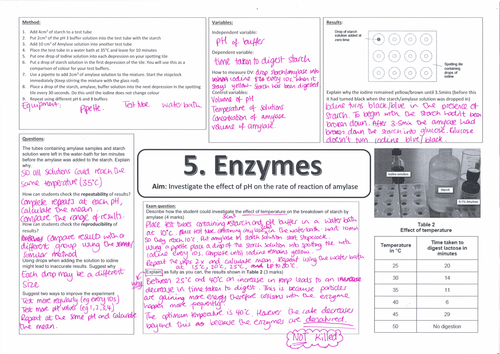 Method:
1. Add 4cm³ of starch to a test tube
2. Put 2cm³ of the pH 3 buffer solution into the test tube with the starch
3. Add 10 cm³ of Amylase solution into another test tube
4. Place the test tube in a water bath at 35°C and leave for 10 minutes
5. Put one drop of iodine solution into each depression on your spotting tile
6. Put a drop of starch solution in the first depression of the tile. You will use this as a comparison of colour for your test buffers.
7. Use a pipette to add 2cm³ of amylase solution to the mixture. Start the stopclock immediately (keep stirring the mixture with the glass rod)
8. Place a drop of the starch, amylase, buffer solution into the next depression in the spotting tile every 30 seconds. Do this until the iodine does not change colour
9. Repeat using different pH 6 and 8 buffers
Equipment: Test tube water bath
Pipette
Variables:
Independent variable:
pH of buffer
Dependent variable:
time taken to digest starch
How to measure DV: drop starch/amylase into
iodine every 10s, when it
stays yellow, starch has been digested
Control variables:
Volume of pH
Temperature of solutions
Concentration of amylase
Volume of amylase.
Results:
Drop of starch solution added at zero time
Spotting tile containing drops of iodine
Explain why the iodine remained yellow/brown until 3.5mins (before this it had turned black when the starch/amylase solution was dropped in)
Iodine turns black/blue in the presence of
starch. To begin with the starch hadn't been
broken down. After 3.5min the amylase had
broken down the starch into glucose. Glucose
doesn't turn iodine blue/black
Questions:
The tubes containing amylase samples and starch solution were left in the water-bath for ten minutes before the amylase was added to the starch. Explain why.
So all solutions could reach the
same temperature (35°C)
How can students check the repeatability of results?
Complete repeats at each pH,
calculate the mean
compare the range of results.
How can students check the reproducibility of results?
Compare results with a
different group using the same/
similar method
Using drops when adding the solution to iodine might lead to inaccurate results. Suggest why
Each drop may be a different
size
Suggest two ways to improve the experiment
Test more regularly (eg every 10s)
Test more pH values (eg 1,2,3,4)
Repeat at the same pH and calculate
the mean.
5. Enzymes
Aim: Investigate the effect of pH on the rate of reaction of amylase
Exam question:
Describe how the student could investigate the effect of temperature on the breakdown of starch by amylase (4 marks)
Explain as fully as you can, the results shown in Table 2 (3 marks)
Between 25°C and 40°C an increase in temp leads to an
decrease in time taken to digest. This is because particles
are gaining more energy therefore collisions with the enzyme
happen more frequently.
The optimum temperature is 40°C. However the rate decreases
beyond this as because the enzymes are denatured.
Not killed
Iodine solution
Starch
Table 2
Effect of temperature
Temperature in °C
Time taken to digest lactose in minutes
25 20
30 14
35 11
40 6
45 29
50 No digestion